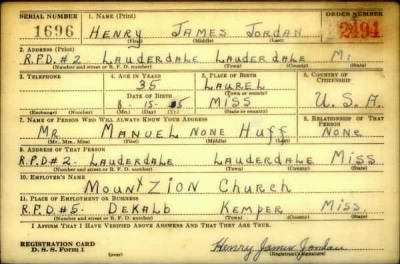 SERIAL NUMBER 1. NAME (Print) ORDER NUMBER
1696 HENRY JAMES JORDAN 2494
(First) (Middle) (Last)
2. ADDRESS (Print)
R.F.D. #2 LAUDERDALE LAUDERDALE MI
(Number and street or R. F. D. number) (Town) (County) (State)
3. TELEPHONE 4. AGE IN YEARS 5. PLACE OF BIRTH 6. COUNTRY OF CITIZENSHIP
35 LAUREL
DATE OF BIRTH (Town or county)
8-15-05 MISS U.S.A.
(Exchange) (Number) (Mo.) (Day) (Yr.) (State or country)
7. NAME OF PERSON WHO WILL ALWAYS KNOW YOUR ADDRESS 8. RELATIONSHIP OF THAT PERSON
MR. MANUEL NONE HUFF NONE
(Mr., Mrs., Miss) (First) (Middle) (Last)
9. ADDRESS OF THAT PERSON
R.F.D #2- LAUDERDALE LAUDERDALE MISS
(Number and street or R. F. D. number) (Town) (County) (State)
10. EMPLOYER'S NAME
MOUNT ZION CHURCH
11. PLACE OF EMPLOYMENT OR BUSINESS
R.F.D #5- DEKALB KEMPER MISS.
(Number and street or R. F. D. number) (Town) (County) (State)
I AFFIRM THAT I HAVE VERIFIED ABOVE ANSWERS AND THAT THEY ARE TRUE.
REGISTRATION CARD
D. S. S. Form 1 Henry James Jordan
(Registrant's signature)